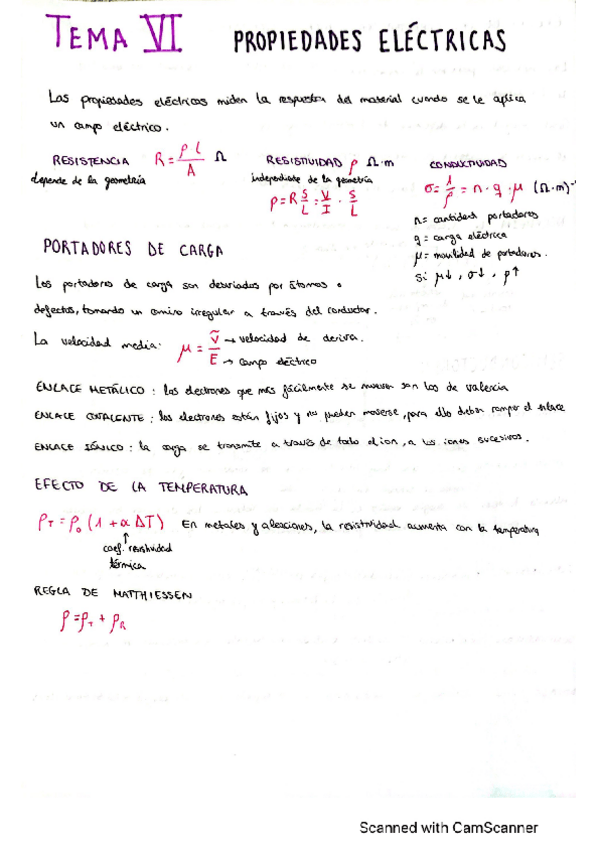 TEMA VI PROPIEDADES ELÉCTRICAS
Las propiedades eléctricas miden la respuesta del material cuando se le aplica
un campo eléctrico.
RESISTENCIA R = ρ l / A Ω
depende de la geometría
RESISTIVIDAD ρ Ω·m
independiente de la geometría
ρ = R S/L = V/I · S/L
CONDUCTIVIDAD
σ = 1/ρ = n · q · μ (Ω·m)⁻
n = cantidad portadores
q = carga eléctrica
μ = movilidad de portadores.
Si μ↓, σ↓, ρ↑
PORTADORES DE CARGA
Los portadores de carga son desviados por átomos o
defectos, tomando un camino irregular a través del conductor.
La velocidad media: μ = ṽ / E
→ velocidad de deriva.
→ campo eléctrico
ENLACE METÁLICO: los electrones que más fácilmente se mueven son los de valencia
ENLACE COVALENTE: los electrones están fijos y no pueden moverse, para ello deben romper el enlace
ENLACE IÓNICO: la carga se transmite a través de todo el ion, a los iones sucesivos.
EFECTO DE LA TEMPERATURA
ρT = ρ0 (1 + α ΔT) En metales y aleaciones, la resistividad aumenta con la temperatura
↑
coef. resistividad
térmica
REGLA DE MATTHIESSEN
ρ = ρT + ρR
Scanned with CamScanner